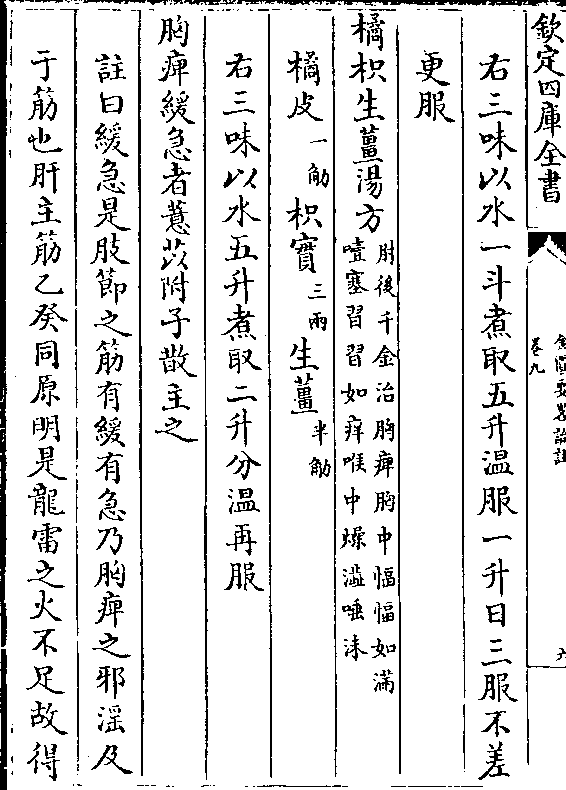 欽定四庫全書
卷九
右三味以水一斗煮取五升溫服一升日三服不差
更服
橘枳生薑湯方
肘後千金治胸痺胸中愊愊如滿
噎塞習習如痒喉中燥澁唾沫
橘皮一觔枳實三兩生薑半觔
右三味以水五升煮取二升分溫再服
胸痺緩急者薏苡附子散主之
註曰緩急是肢節之筋有緩有急乃胸痺之邪淫及
于筋也肝主筋乙癸同原明是龍雷之火不足故得